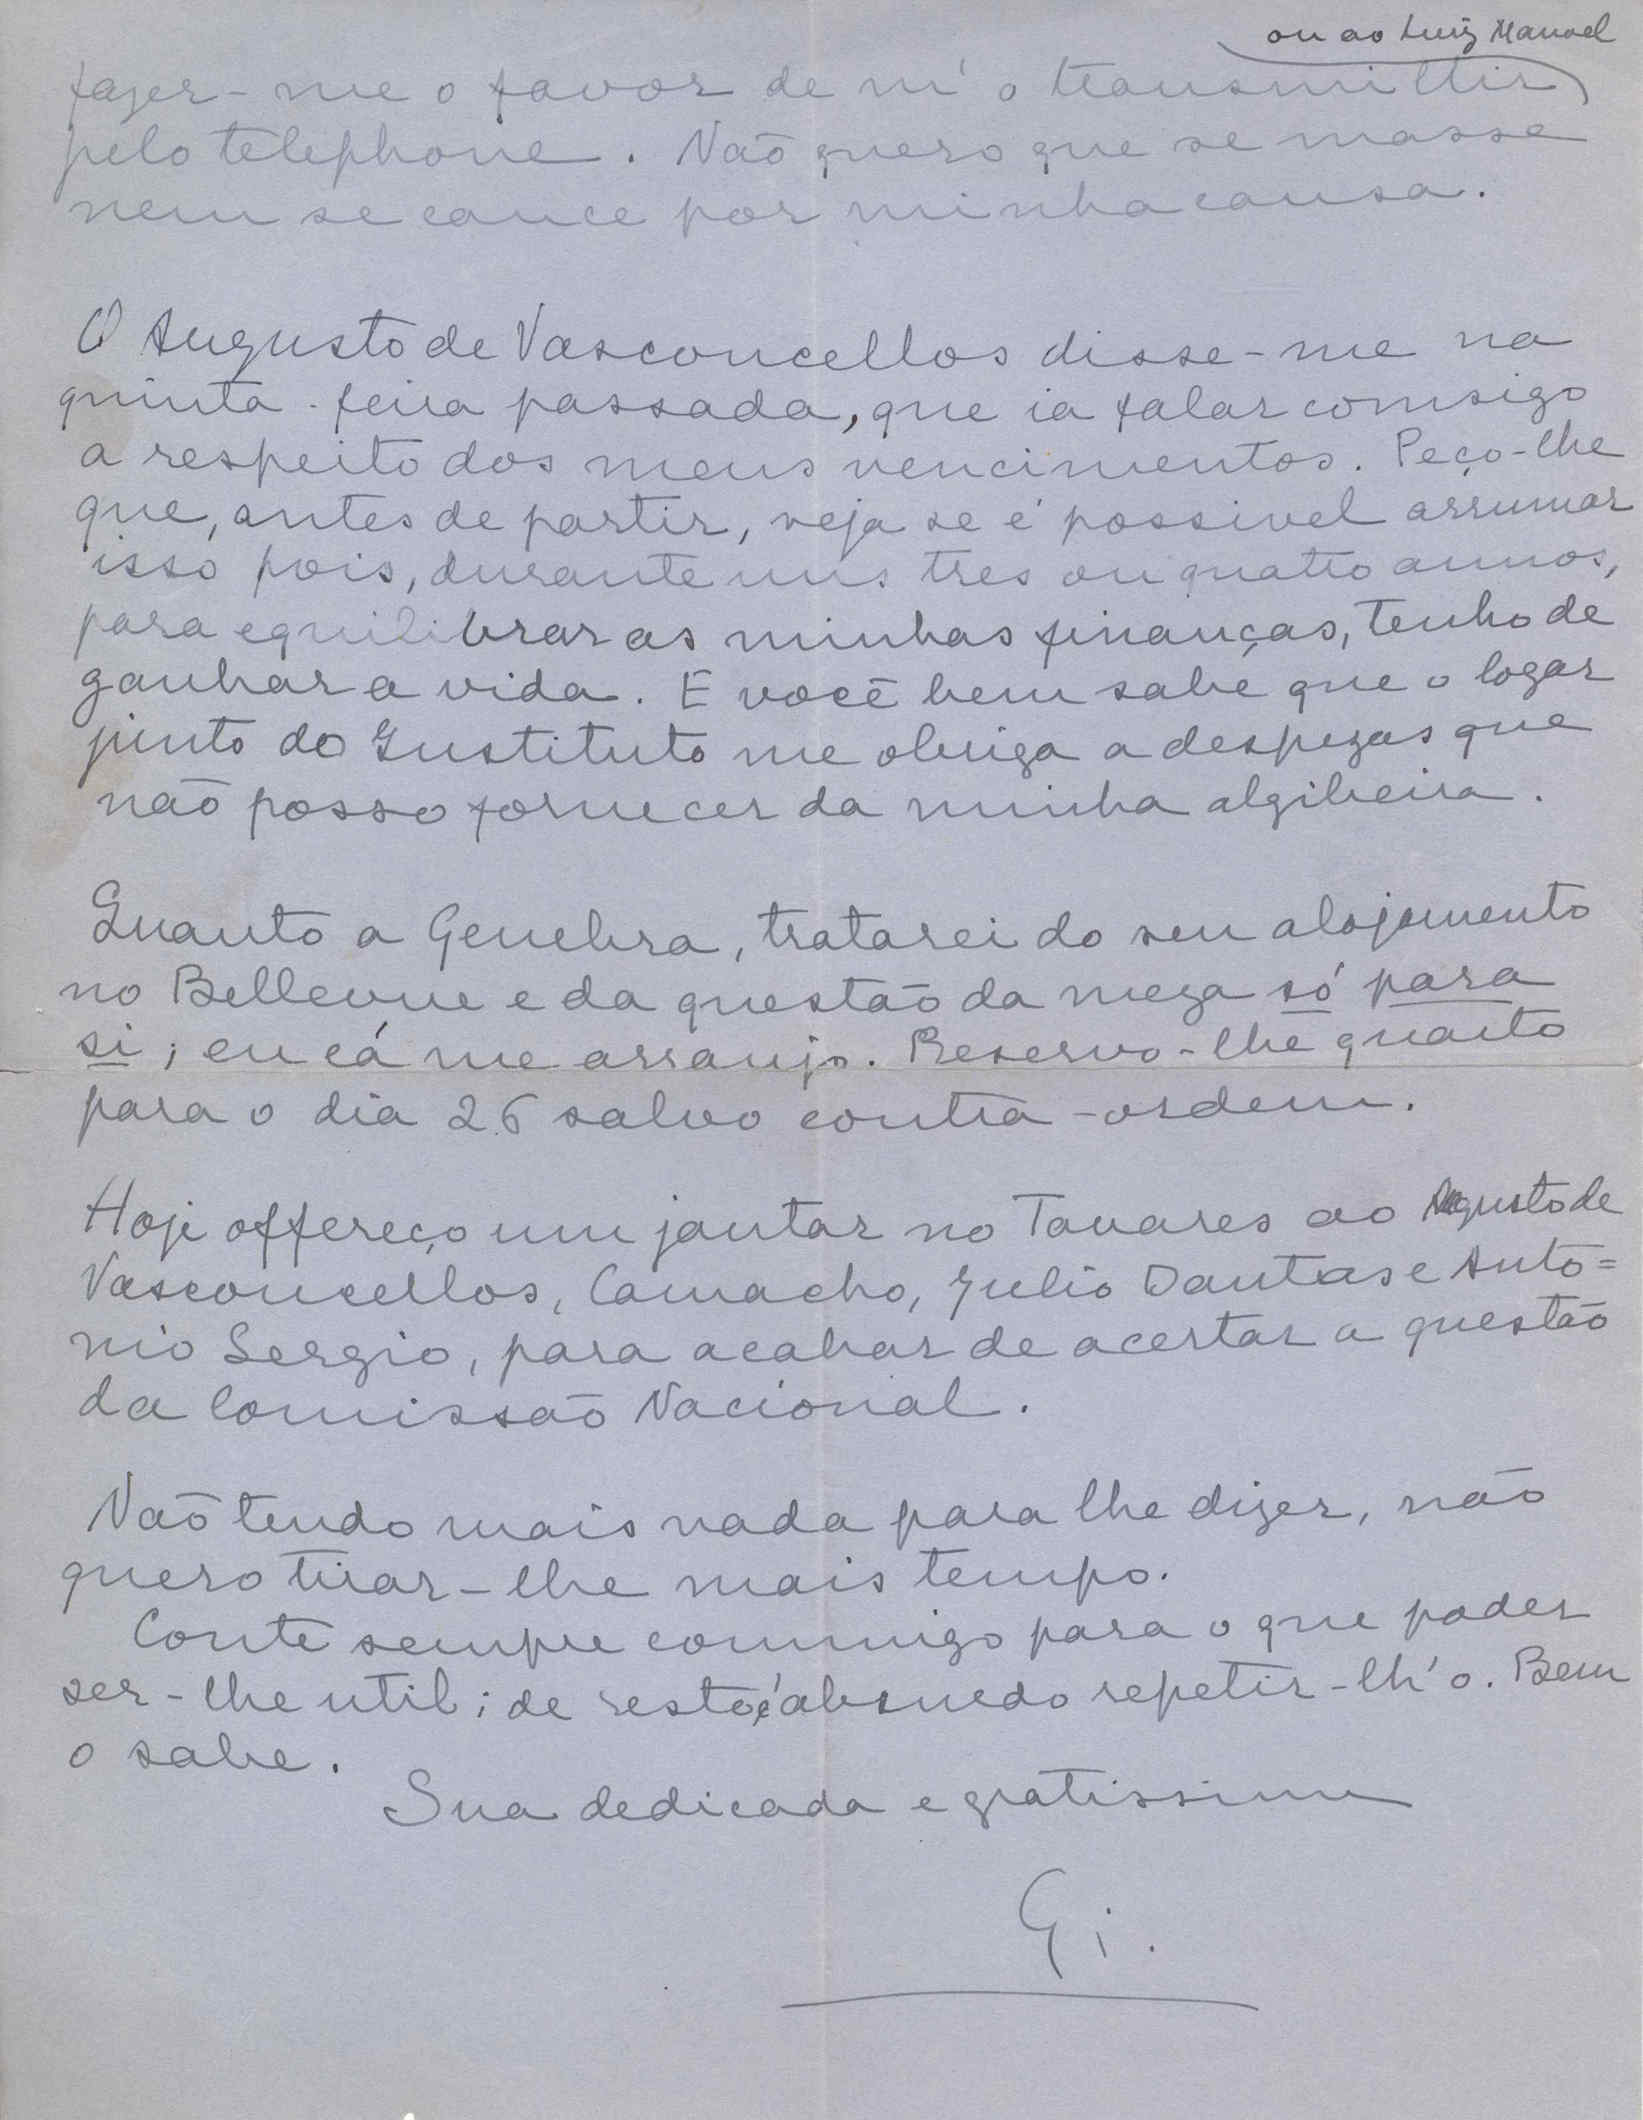 ou ao Luiz Manoel
fazer-me o favor de m'o transmittir
pelo telephone. Não quero que se masse
nem se cance por minha causa.
O Augusto de Vasconcellos disse-me na
quinta-feira passada, que ia falar comsigo
a respeito dos meus vencimentos. Peço-lhe
que, antes de partir, veja se é possivel arrumar
isso pois, durante uns tres ou quatro annos,
para equilibrar as minhas finanças, tenho de
ganhar a vida. E você bem sabe que o logar
junto do Instituto me obriga a despezas que
não posso fornecer da minha algibeira.
Quanto a Genebra, tratarei do seu alojamento
no Bellevue e da questão da meza só para
si; eu cá me arranjo. Reservo-lhe quarto
para o dia 26 salvo contra-ordem.
Hoje offereço um jantar no Tavares ao Augusto de
Vasconcellos, Camacho, Julio Dantas e Anto=
nio Sergio, para acabar de acertar a questão
da Comissão Nacional.
Não tendo mais nada para lhe dizer, não
quero tirar-lhe mais tempo.
Conte sempre commigo para o que poder
ser-lhe util; de resto é absurdo repetir-lh'o. Bem
o sabe.
Sua dedicada e gratissima
Gi.